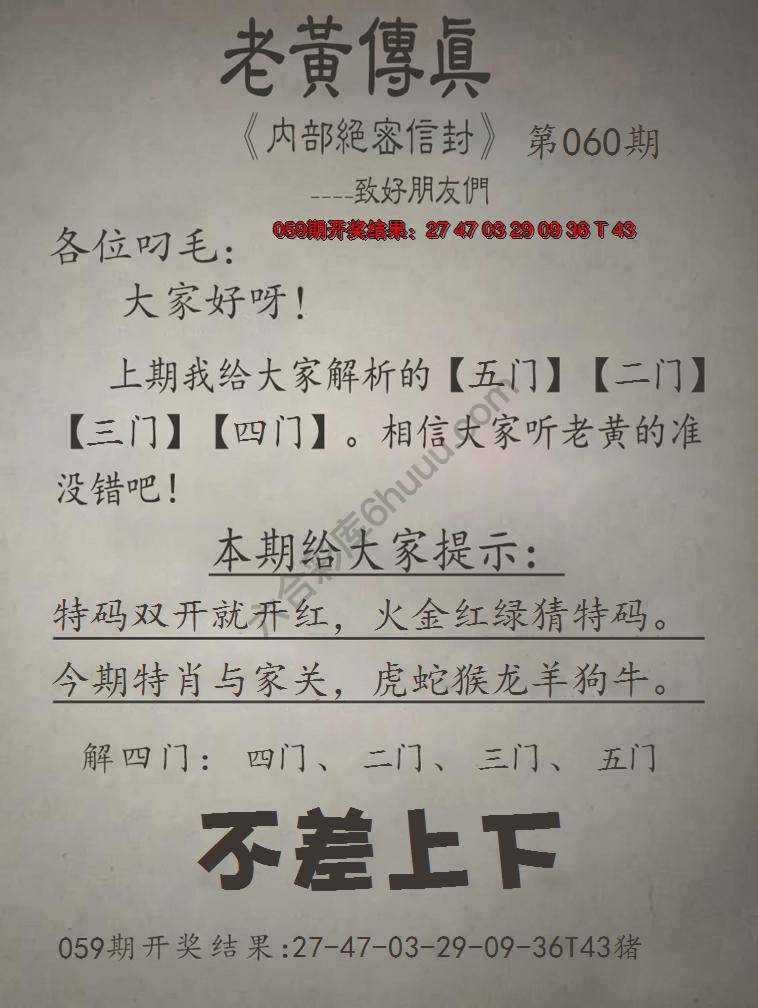 老黃傳真
《内部絕密信封》 第060期
----致好朋友們
059期开奖结果：27 47 03 29 09 36 T 43
各位叼毛：
大家好呀！
上期我给大家解析的【五门】【二门】
【三门】【四门】。相信大家听老黄的准
没错吧！
本期给大家提示：
特码双开就开红，火金红绿猜特码。
今期特肖与家关，虎蛇猴龙羊狗牛。
解四门：四门、二门、三门、五门
不差上下
059期开奖结果:27-47-03-29-09-36T43猪
六合彩库6huuu.com